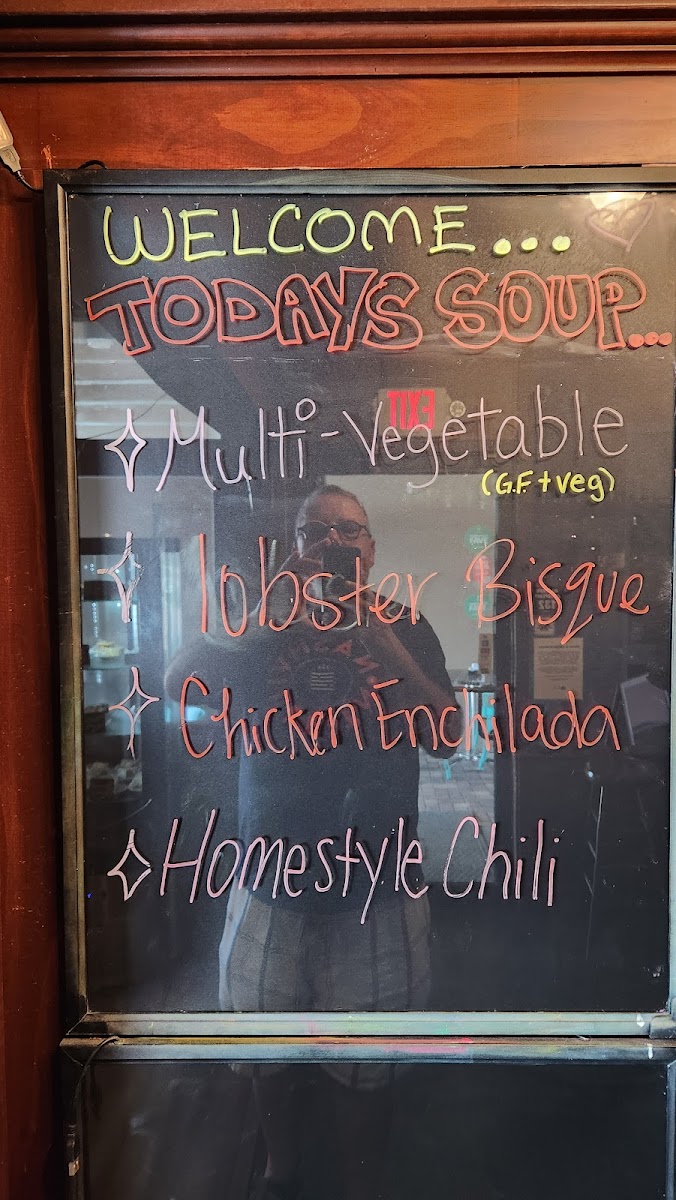 WELCOME...
TODAYS SOUP...
Multi-Vegetable
(G.F. + veg)
lobster Bisque
Chicken Enchilada
Homestyle Chili
EXIT